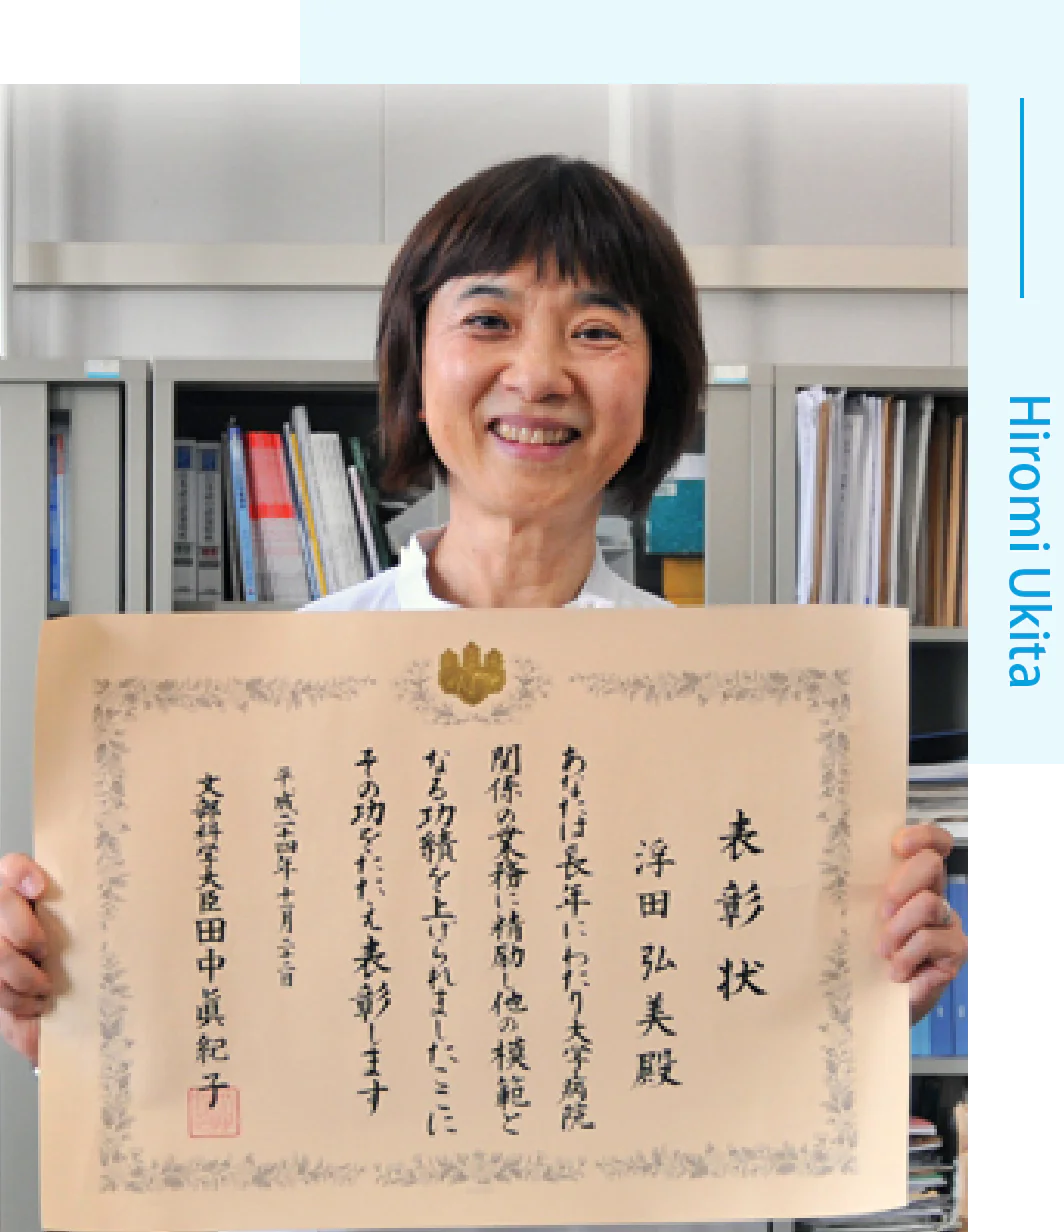 Hiromi Ukita
表彰状
浮田弘美殿
あなたは長年にわたり大学病院
関係の業務に精励し他の模範と
なる功績を上げられましたここに
その功をたたえ表彰します
平成二十四年十一月二十二日
文部科学大臣田中眞紀子